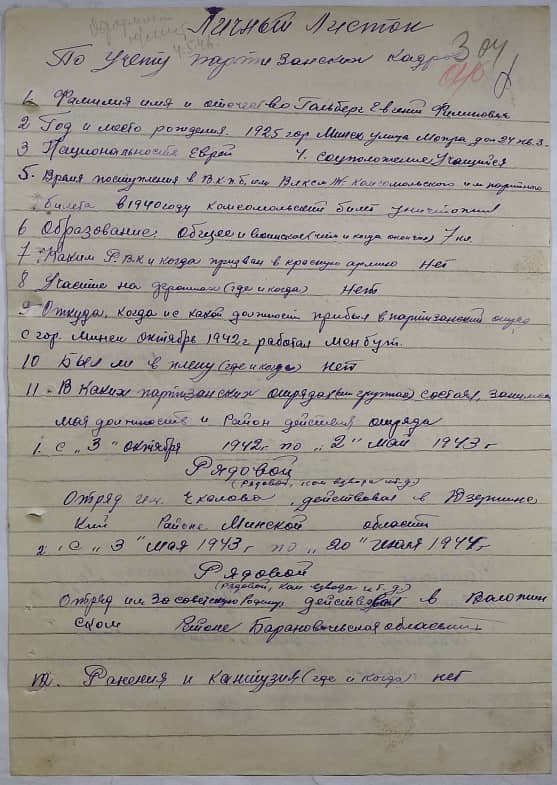 Личный Листок
По Учету партизанских кадров
304
1. Фамилия имя и оточество Гольберг Евгений Филипович
2 Год и место рождения. 1925 гор Минск улица Мопра дом 24 кв. 3
3 Национальность Еврей 4. соцположение Учащийся
5. Время поступления в В.К.П.б. или В.Л.К.С.М. Комсомольского или партийно
билета в 1940 году комсомольский билет уничтожил
6 Образование: Общее и воинское (что и когда окончил) 7 кл.
7. Каким Р.В.К и когда призван в красную армию Нет
8 Участие на (где и когда) Нет
9 Откуда, когда и с какой должности прибыл в партизанский отряд
с гор. Минск октябрь 1942 г работал
10 Был ли в плену (где и когда) нет
11. В Каких партизанских отрядах (или группах) состоял, занима
мая должность и Район действия отряда
1. с „3" октября 1942 г по „2" май 1943 г
Рядовой
(Рядовой, ком взвода и т.д)
Отряд им. Чкалова, действовал в Дзержинс
ком Районе Минской области
2. с „3" мая 1943 г по „20" июля 1944 г
Рядовой
(рядовой, ком взвода и т.д)
Отряд им За советскую родину действовал в Воложин
ском Районе Барановичьская области
12. Ранения и кантузия (где и когда) нет